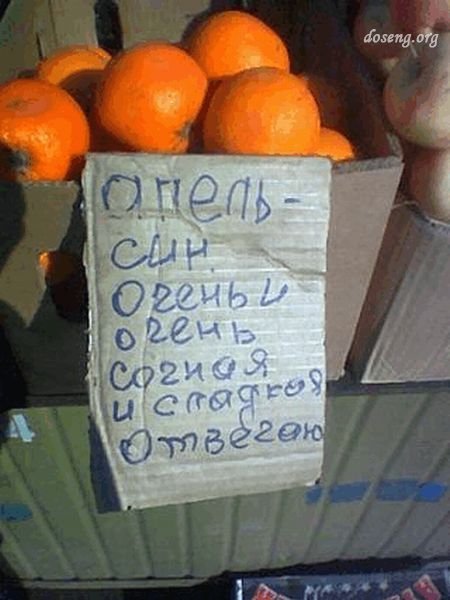 doseng.org
апель-
син
очень и
очень
сочная
и сладкая
отвечаю